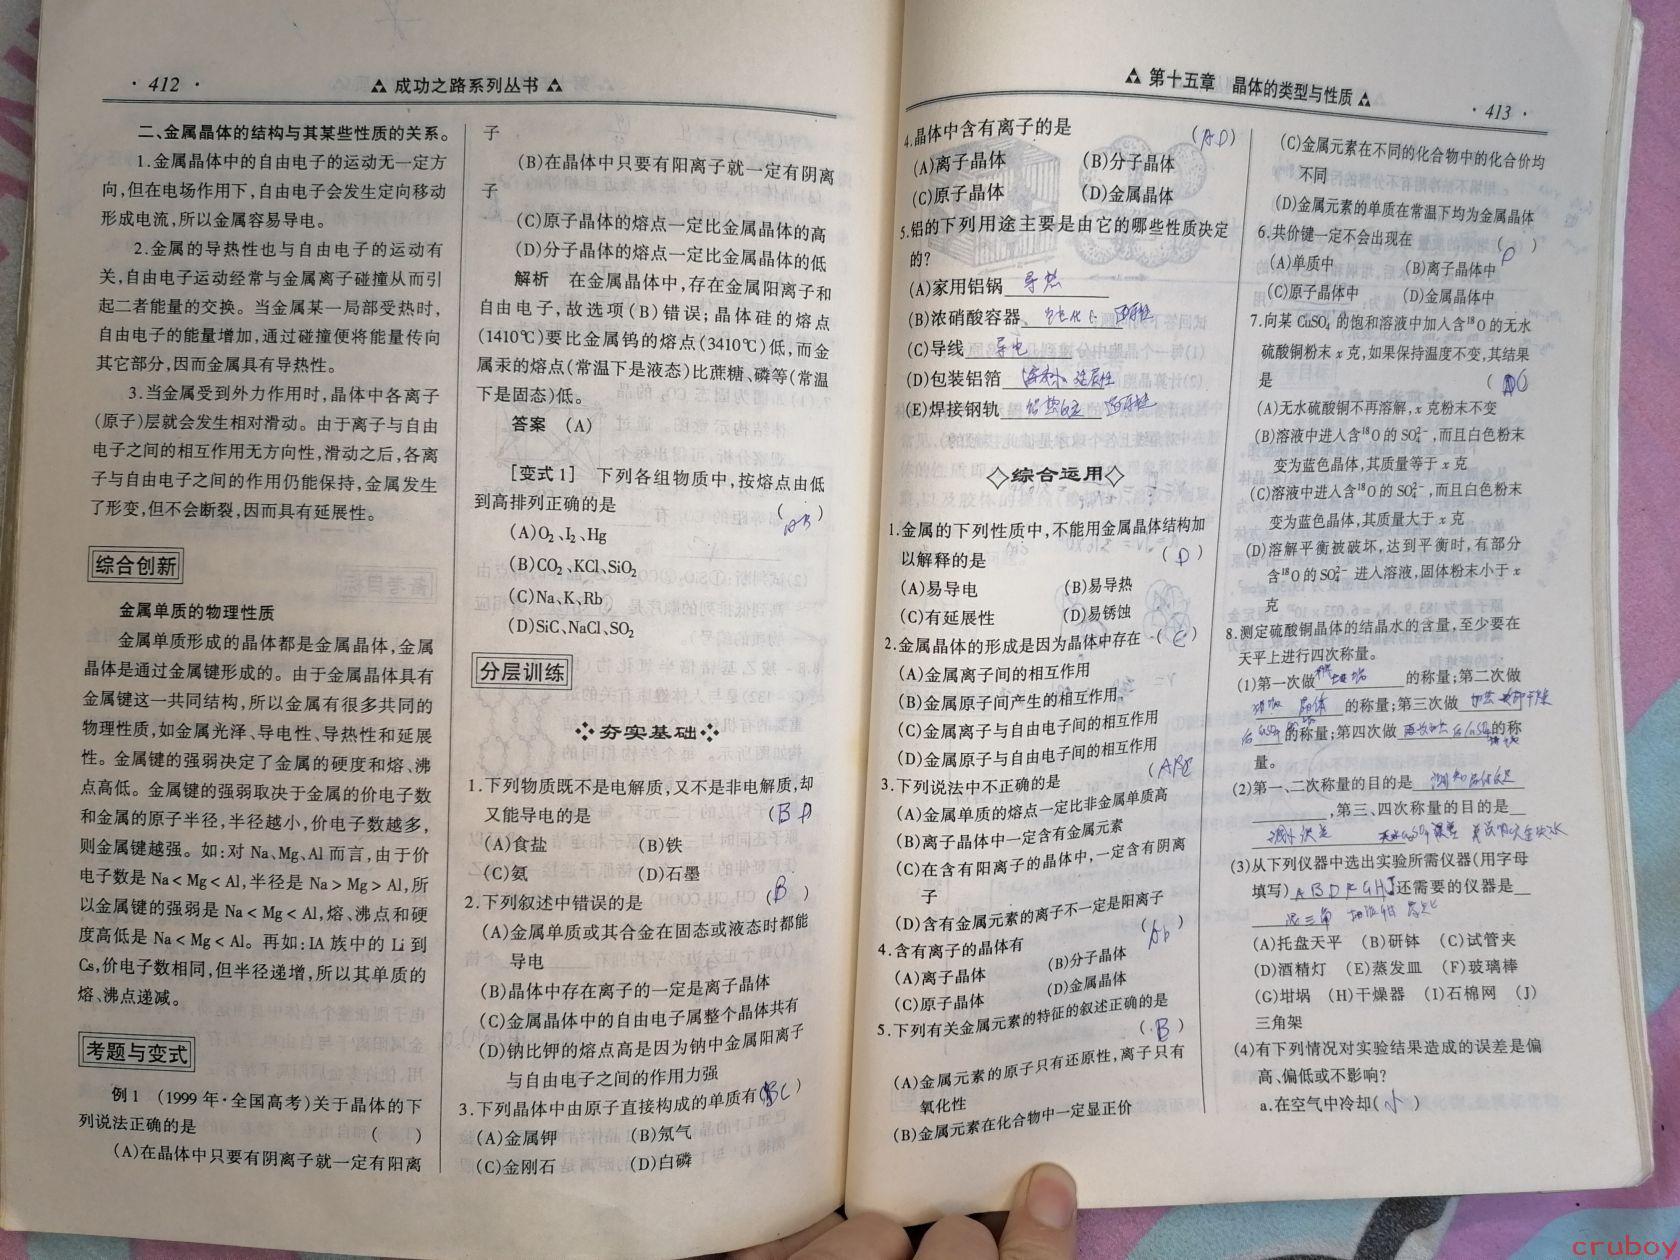 · 412 ·
成功之路系列丛书
二、金属晶体的结构与其某些性质的关系。
1.金属晶体中的自由电子的运动无一定方
向,但在电场作用下,自由电子会发生定向移动
形成电流,所以金属容易导电。
2.金属的导热性也与自由电子的运动有
关,自由电子运动经常与金属离子碰撞从而引
起二者能量的交换。当金属某一局部受热时,
自由电子的能量增加,通过碰撞便将能量传向
其它部分,因而金属具有导热性。
3.当金属受到外力作用时,晶体中各离子
(原子)层就会发生相对滑动。由于离子与自由
电子之间的相互作用无方向性,滑动之后,各离
子与自由电子之间的作用仍能保持,金属发生
了形变,但不会断裂,因而具有延展性。
综合创新
金属单质的物理性质
金属单质形成的晶体都是金属晶体,金属
晶体是通过金属键形成的。由于金属晶体具有
金属键这一共同结构,所以金属有很多共同的
物理性质,如金属光泽、导电性、导热性和延展
性。金属键的强弱决定了金属的硬度和熔、沸
点高低。金属键的强弱取决于金属的价电子数
和金属的原子半径,半径越小,价电子数越多,
则金属键越强。如:对 Na、Mg、Al 而言,由于价
电子数是 Na < Mg < Al,半径是 Na > Mg > Al,所
以金属键的强弱是 Na < Mg < Al,熔、沸点和硬
度高低是 Na < Mg < Al。再如:IA 族中的 Li 到
Cs,价电子数相同,但半径递增,所以其单质的
熔、沸点递减。
考题与变式
例 1 (1999 年·全国高考)关于晶体的下
列说法正确的是 ( )
(A)在晶体中只要有阴离子就一定有阳离
子
(B)在晶体中只要有阳离子就一定有阴离
子
(C)原子晶体的熔点一定比金属晶体的高
(D)分子晶体的熔点一定比金属晶体的低
解析 在金属晶体中,存在金属阳离子和
自由电子,故选项(B)错误;晶体硅的熔点
(1410℃)要比金属钨的熔点(3410℃)低,而金
属汞的熔点(常温下是液态)比蔗糖、磷等(常温
下是固态)低。
答案 (A)
[变式 1] 下列各组物质中,按熔点由低
到高排列正确的是 ( AB )
(A)O₂、I₂、Hg
(B)CO₂、KCl、SiO₂
(C)Na、K、Rb
(D)SiC、NaCl、SO₂
分层训练
夯实基础
1.下列物质既不是电解质,又不是非电解质,却
又能导电的是 ( B D
(A)食盐 (B)铁
(C)氨 (D)石墨
2.下列叙述中错误的是 ( B )
(A)金属单质或其合金在固态或液态时都能
导电
(B)晶体中存在离子的一定是离子晶体
(C)金属晶体中的自由电子属整个晶体共有
(D)钠比钾的熔点高是因为钠中金属阳离子
与自由电子之间的作用力强
3.下列晶体中由原子直接构成的单质有( BC )
(A)金属钾 (B)氖气
(C)金刚石 (D)白磷
第十五章 晶体的类型与性质
· 413 ·
4.晶体中含有离子的是 ( AD )
(A)离子晶体 (B)分子晶体
(C)原子晶体 (D)金属晶体
5.铝的下列用途主要是由它的哪些性质决定
的?
(A)家用铝锅 导热
(B)浓硝酸容器、
(C)导线 导电
(D)包装铝箔 延展性
(E)焊接钢轨
综合运用
1.金属的下列性质中,不能用金属晶体结构加
以解释的是 ( D )
(A)易导电 (B)易导热
(C)有延展性 (D)易锈蚀
2.金属晶体的形成是因为晶体中存在 ( C )
(A)金属离子间的相互作用
(B)金属原子间产生的相互作用
(C)金属离子与自由电子间的相互作用
(D)金属原子与自由电子间的相互作用
3.下列说法中不正确的是 ( ABC
(A)金属单质的熔点一定比非金属单质高
(B)离子晶体中一定含有金属元素
(C)在含有阳离子的晶体中,一定含有阴离
子
(D)含有金属元素的离子不一定是阳离子
4.含有离子的晶体有 ( AD )
(A)离子晶体 (B)分子晶体
(C)原子晶体 (D)金属晶体
5.下列有关金属元素的特征的叙述正确的是
( B )
(A)金属元素的原子只有还原性,离子只有
氧化性
(B)金属元素在化合物中一定显正价
(C)金属元素在不同的化合物中的化合价均
不同
(D)金属元素的单质在常温下均为金属晶体
6.共价键一定不会出现在 ( D )
(A)单质中 (B)离子晶体中
(C)原子晶体中 (D)金属晶体中
7.向某 CuSO₄ 的饱和溶液中加入含¹⁸O 的无水
硫酸铜粉末 x 克,如果保持温度不变,其结果
是 ( )
(A)无水硫酸铜不再溶解,x 克粉末不变
(B)溶液中进入含¹⁸O 的 SO₄²⁻,而且白色粉末
变为蓝色晶体,其质量等于 x 克
(C)溶液中进入含¹⁸O 的 SO₄²⁻,而且白色粉末
变为蓝色晶体,其质量大于 x 克
(D)溶解平衡被破坏,达到平衡时,有部分
含¹⁸O 的 SO₄²⁻ 进入溶液,固体粉末小于 x
克
8.测定硫酸铜晶体的结晶水的含量,至少要在
天平上进行四次称量。
(1)第一次做 坩埚 的称量;第二次做
晶体 的称量;第三次做
的称量;第四次做 的称
量。
(2)第一、二次称量的目的是
,第三、四次称量的目的是
(3)从下列仪器中选出实验所需仪器(用字母
填写) A B D F G H J 还需要的仪器是
泥三角
(A)托盘天平 (B)研钵 (C)试管夹
(D)酒精灯 (E)蒸发皿 (F)玻璃棒
(G)坩埚 (H)干燥器 (I)石棉网 (J)
三角架
(4)有下列情况对实验结果造成的误差是偏
高、偏低或不影响?
a.在空气中冷却( 小 )
cruboy